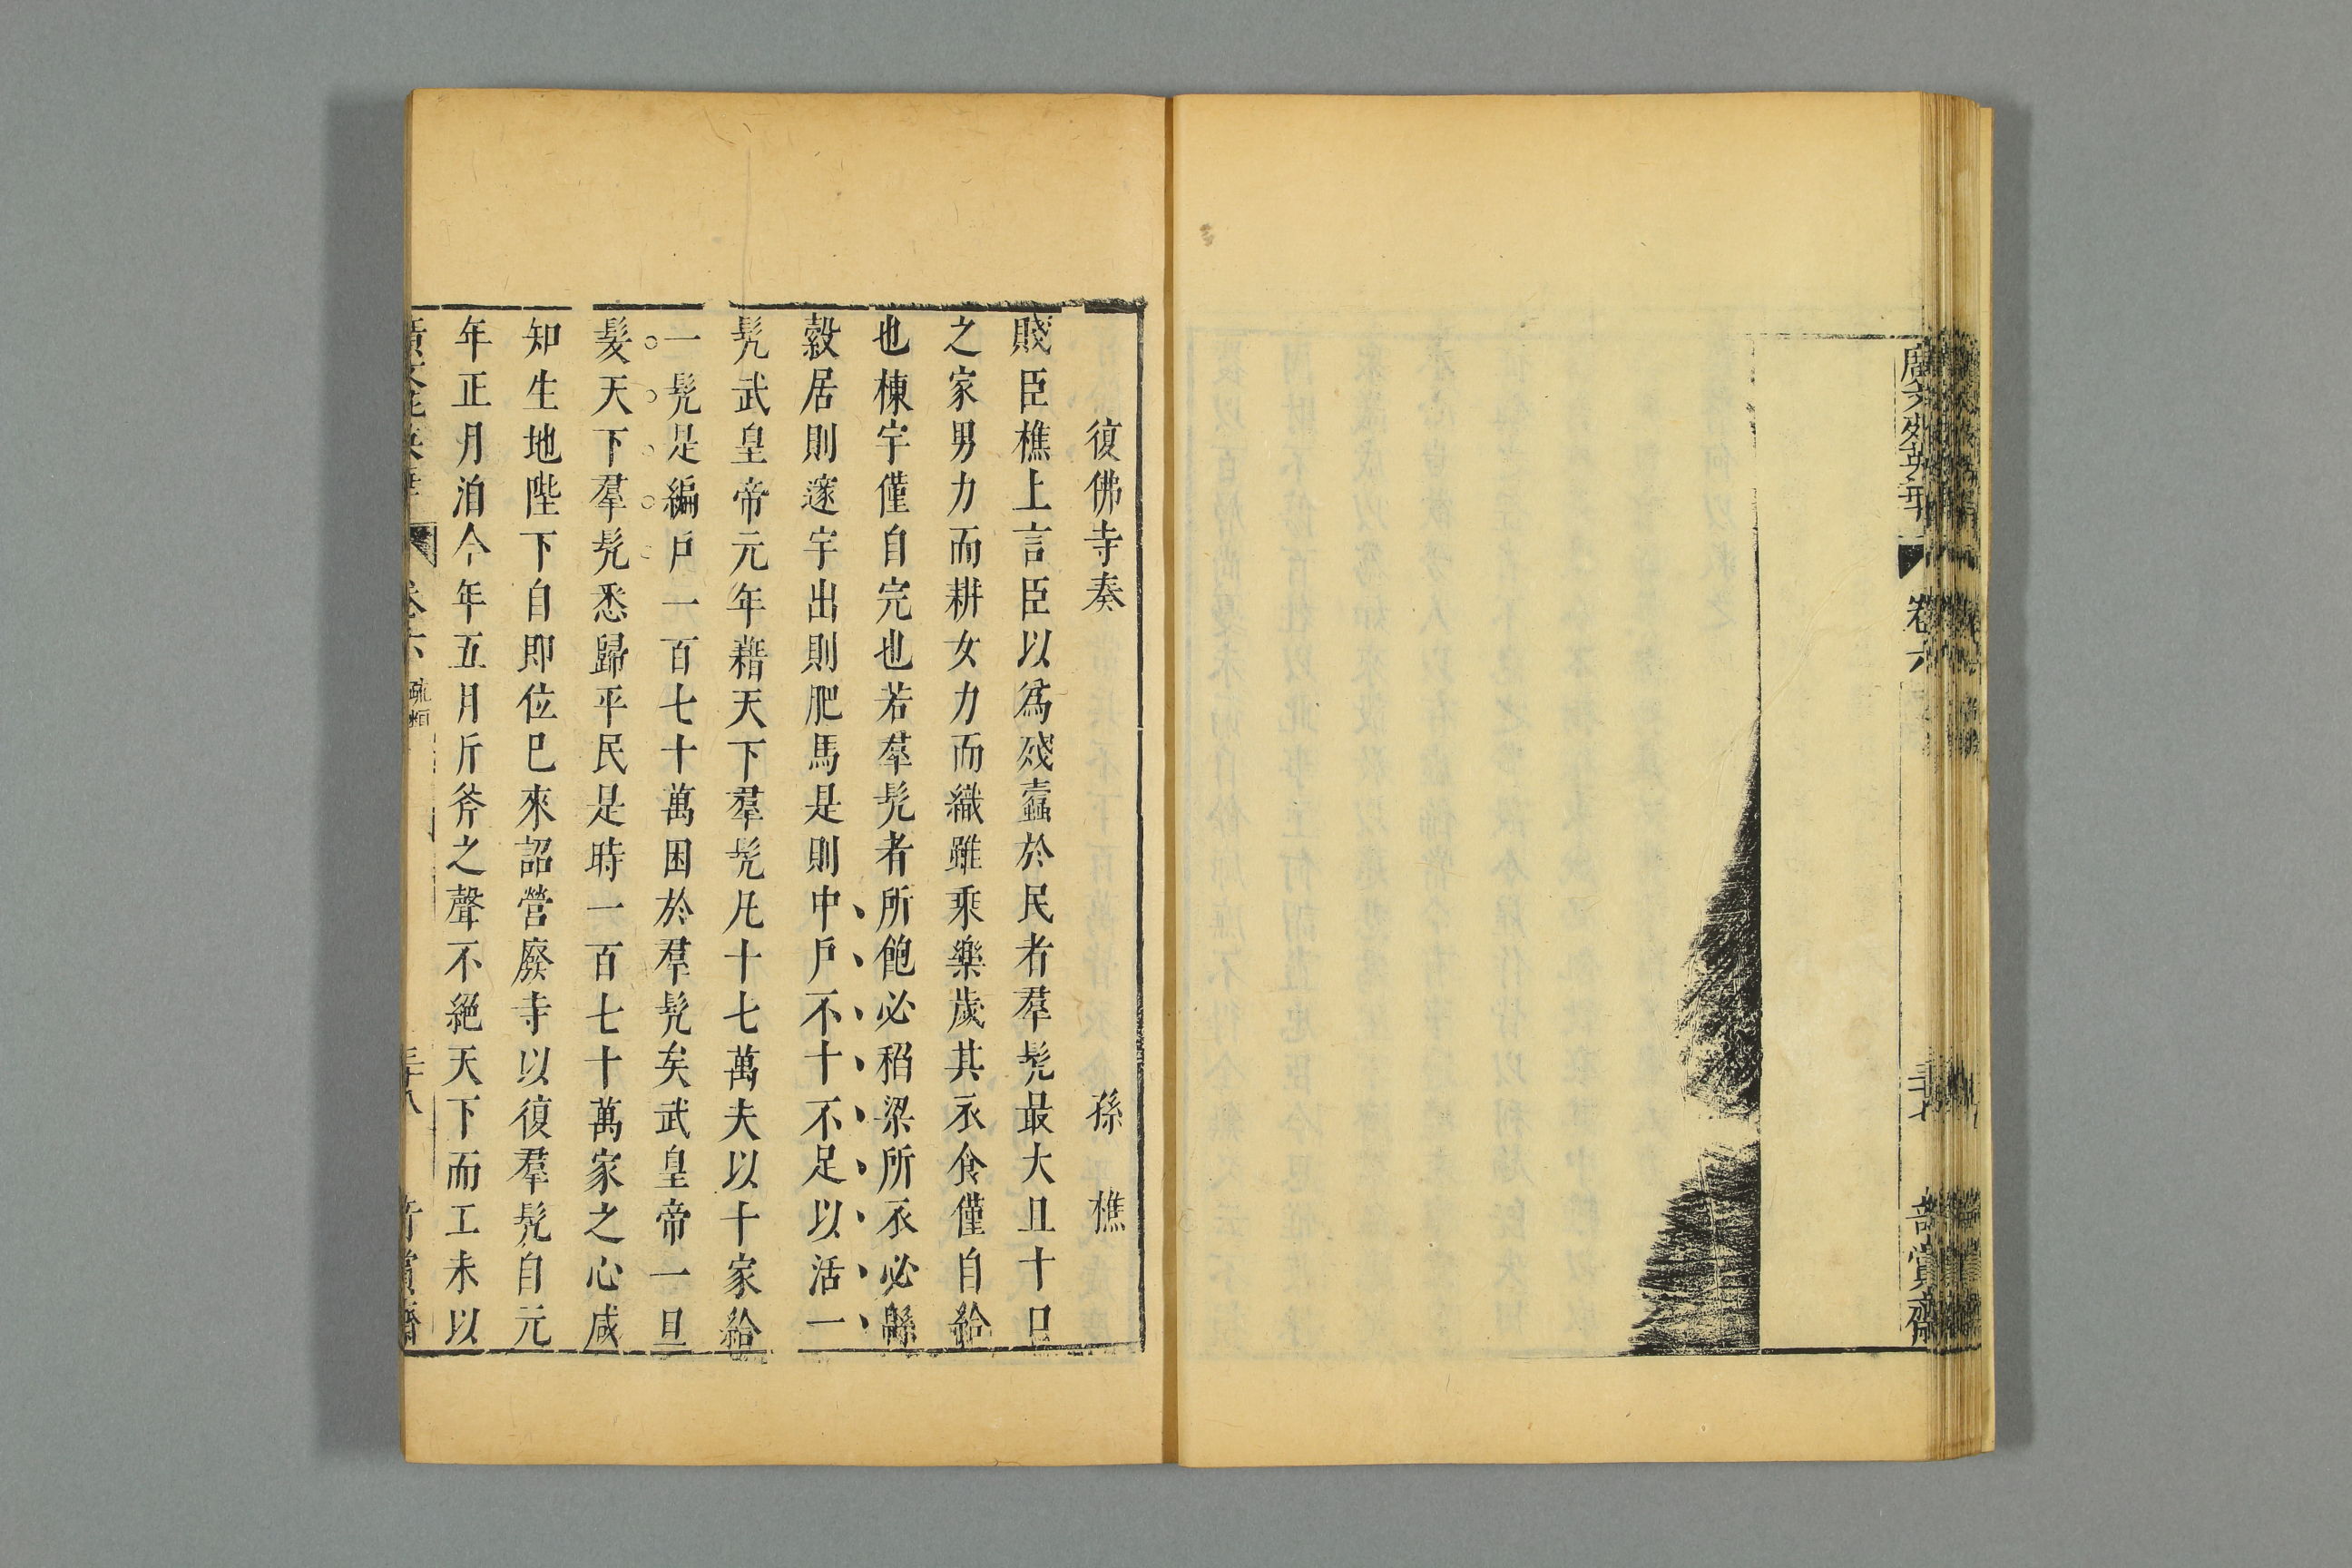 卷六
復佛寺奏 孫樵
賤臣樵上言臣以爲殘蠹於民者羣髡最大且十口
之家男力而耕女力而織雖乘樂歲其衣食僅自給
也棟宇僅自完也若羣髡者所飽必稻粱所衣必緜
縠居則邃宇出則肥馬是則中戶不十不足以活一
髡武皇帝元年籍天下羣髡凡十七萬夫以十家給
一髡是編戶一百七十萬困於羣髡矣武皇帝一旦
髮天下羣髡悉歸平民是時一百七十萬家之心咸
知生地陛下自即位已來詔營廢寺以復羣髡自元
年正月洎今年五月斤斧之聲不絕天下而工未以